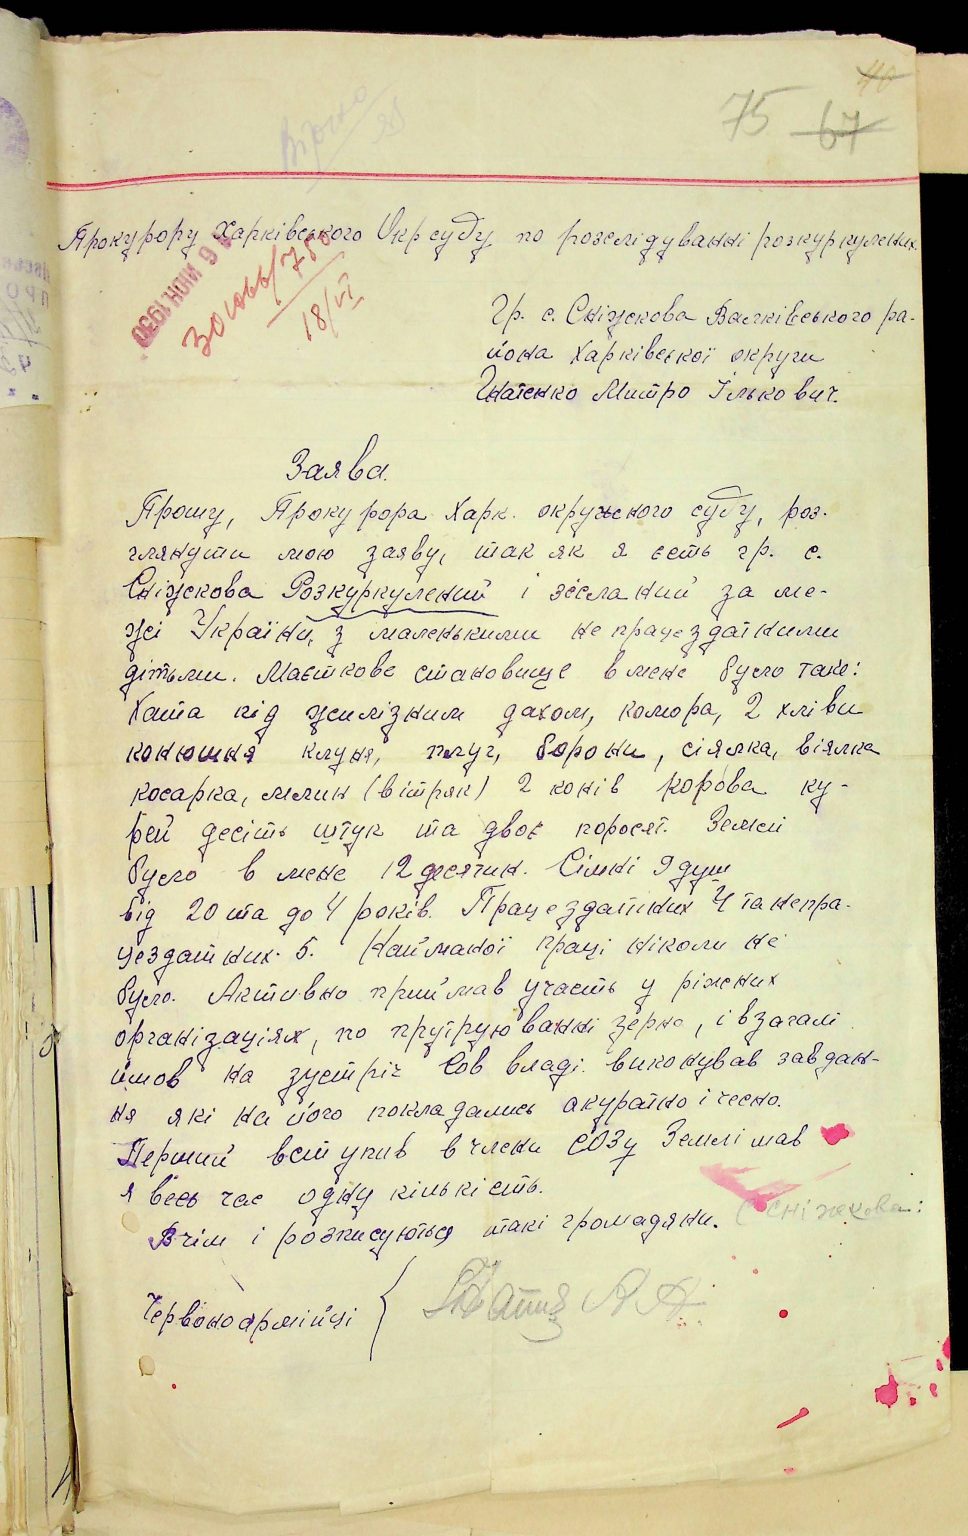 40
75 67
Прокурору Харківського Окрсуду по розслідуванні розкуркулених.
6 ИЮН 1930
18/VI
Гр. с. Сніжкова Валківського ра-
йона Харківської округи
Гнатенко Митро Ількович.
Заява.
Прошу, Прокурора Харк. окружного суду, роз-
глянути мою заяву, так як я єсть гр. с.
Сніжкова Розкуркулений і зісланий за ме-
жі Україний, з маленькими не працездатними
дітьми. Маєткове становище в мене було таке:
Хата під желізним дахом, комора, 2 хліви
конюшня клуня, плуг, борони, сіялка, віялка
косарка, млин (вітряк) 2 конів Корова ку-
рей десіть штук та двоє поросят. Землі
було в мене 12 десятин. Сімні 9 душ
від 20 та до 4 років. Працездатних 4 та непра-
цездатних. 5. Найманої праці ніколи не
було. Активно приймав участь у ріжних
організаціях, по протрюванні зерна, і взагалі
йшов на зустріч Сов владі. виконував завдан-
ня які на його покладались акуратно і чесно.
Перший вступив в члени СОЗу Землі мав
я ввесь час одну кількість.
В чім і розписуються такі громадяни. Сніжкова:
Червоноармійці {